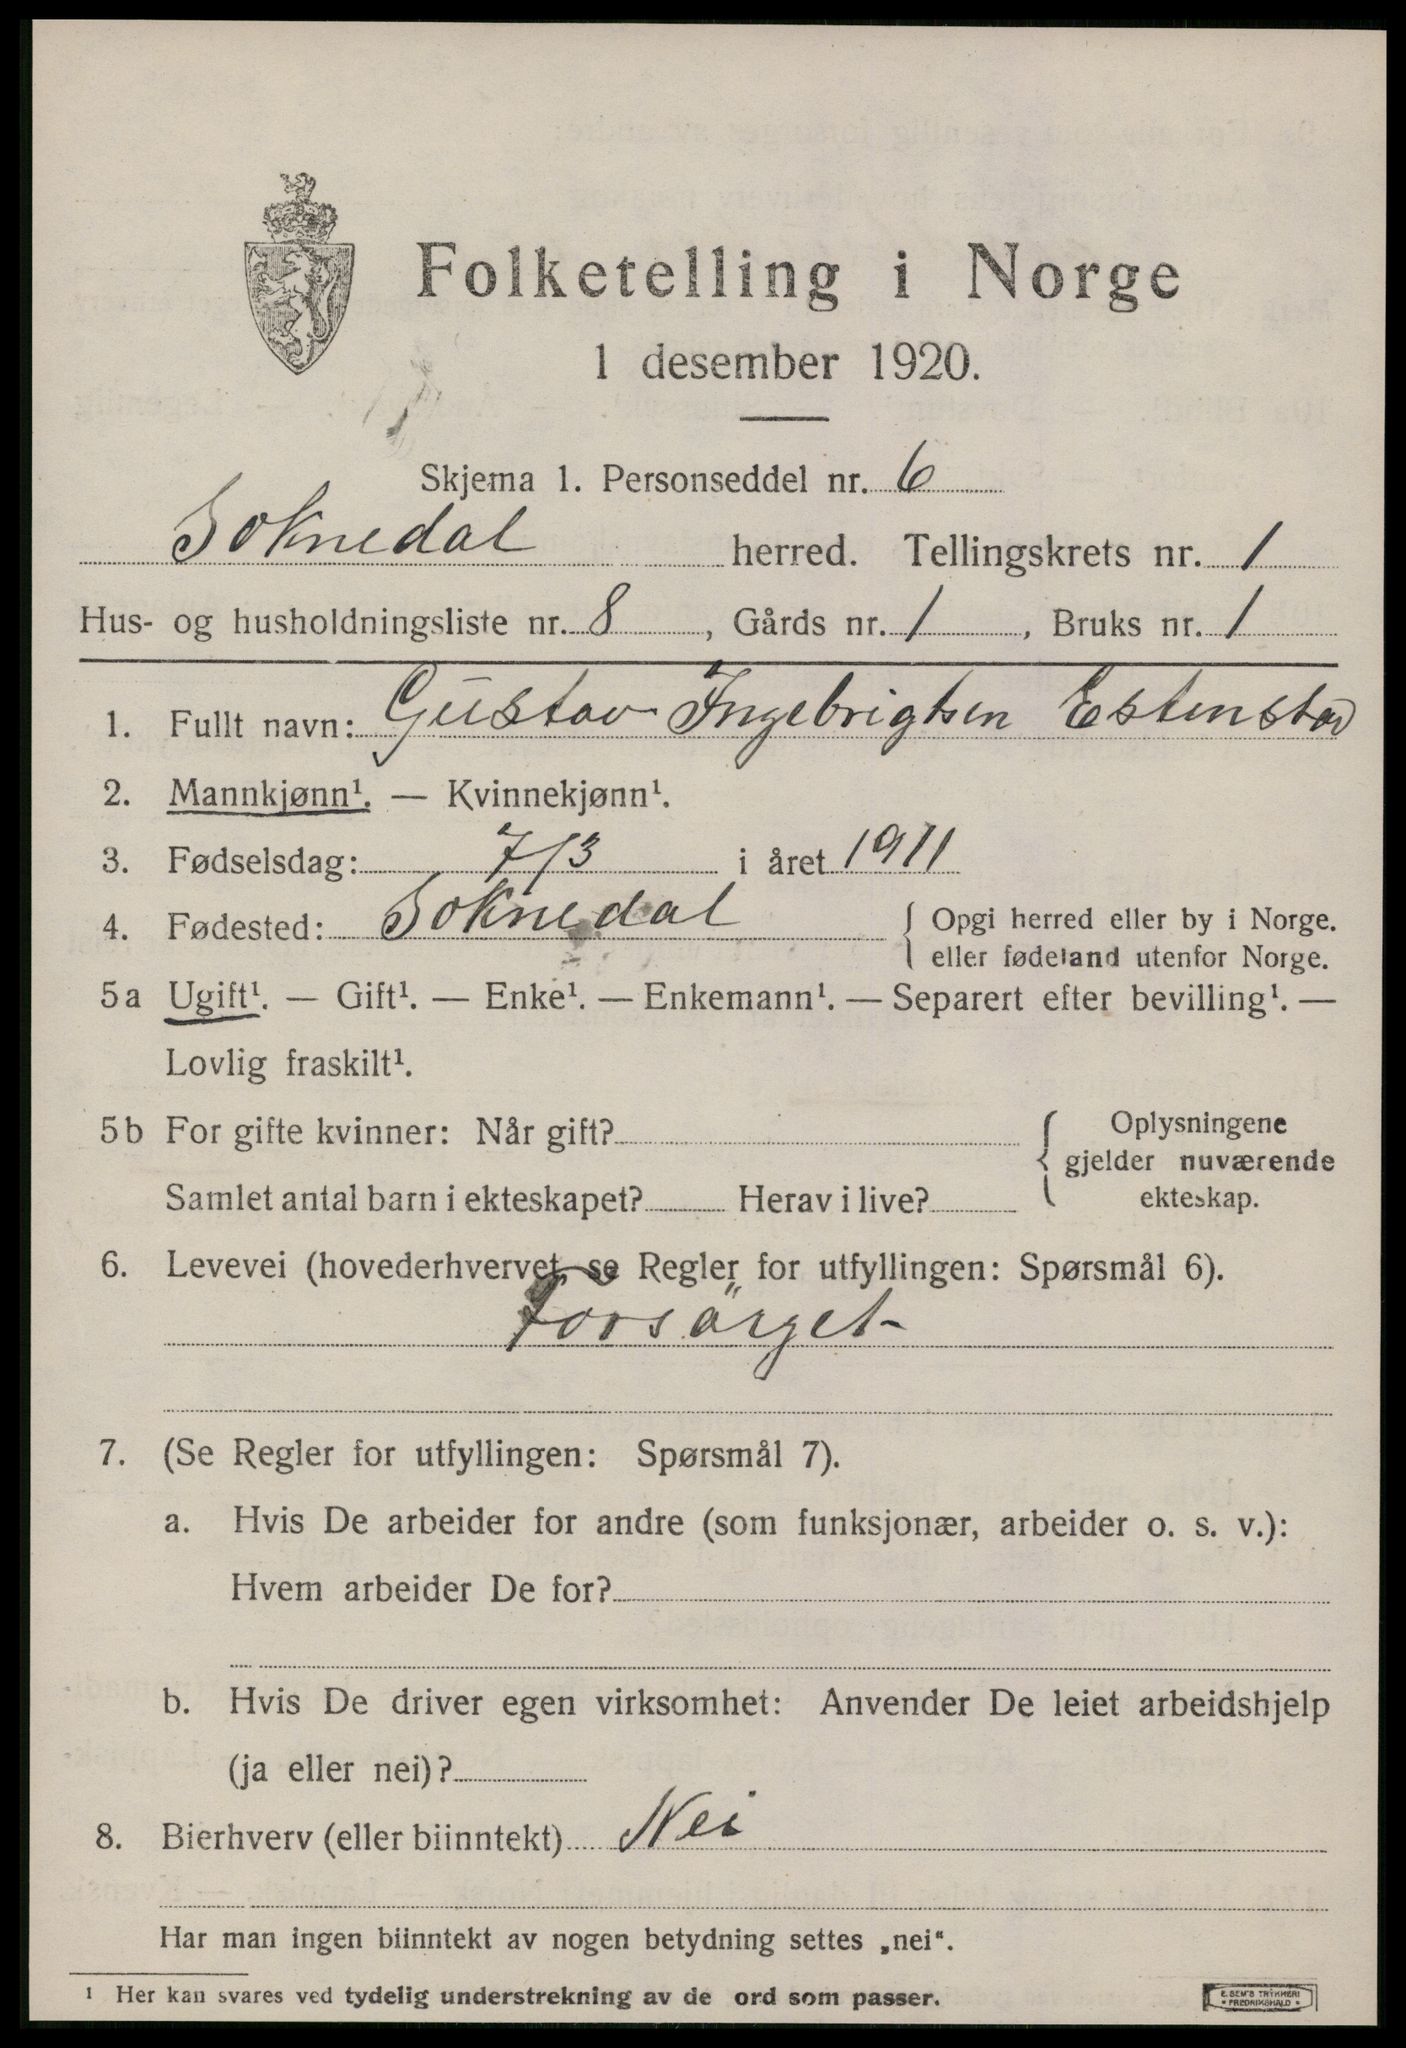 Folketelling i Norge
1 desember 1920.
Skjema 1. Personseddel nr. 6
Soknedal herred. Tellingskrets nr. 1
Hus- og husholdningsliste nr. 8, Gårds nr. 1, Bruks nr. 1
1. Fullt navn: Gustav Ingebrigtsen Estenstad
2. Mannkjønn¹. — Kvinnekjønn¹.
3. Fødselsdag: 7/3 i året 1911
4. Fødested: Soknedal { Opgi herred eller by i Norge.
eller fødeland utenfor Norge.
5a Ugift¹. — Gift¹. — Enke¹. — Enkemann¹. — Separert efter bevilling¹. —
Lovlig fraskilt¹.
5b For gifte kvinner: Når gift? { Oplysningene
gjelder nuværende
Samlet antal barn i ekteskapet? Herav i live? ekteskap.
6. Levevei (hovederhvervet, se Regler for utfyllingen: Spørsmål 6).
Forsörget
7. (Se Regler for utfyllingen: Spørsmål 7).
a. Hvis De arbeider for andre (som funksjonær, arbeider o. s. v.):
Hvem arbeider De for?
b. Hvis De driver egen virksomhet: Anvender De leiet arbeidshjelp
(ja eller nei)?
8. Bierhverv (eller biinntekt) Nei
Har man ingen biinntekt av nogen betydning settes „nei“.
¹ Her kan svares ved tydelig understrekning av de ord som passer.
E. SEM'S TRYKKERI
• FREDRIKSHALD •